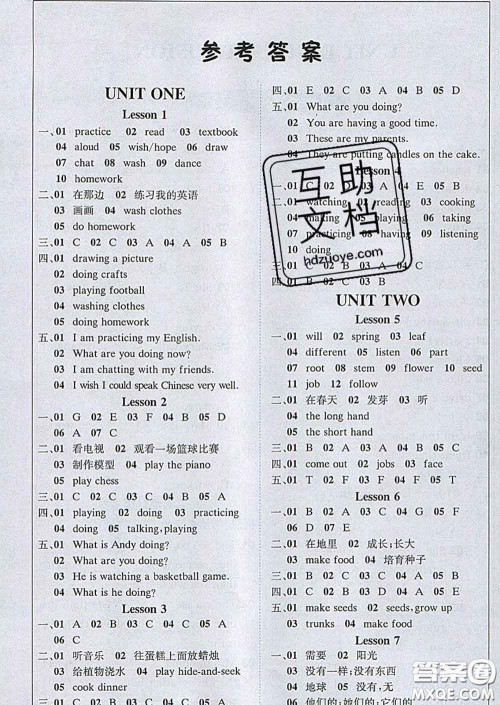 参考答案
UNIT ONE
Lesson 1
一、01 practice 02 read 03 textbook
04 aloud 05 wish/hope 06 draw
07 chat 08 wash 09 dance
10 homework
二、01 在那边 02 练习我的英语
03 画画 04 wash clothes
05 do homework
三、01 C 02 C 03 A 04 A 05 B
四、01 drawing a picture
02 doing crafts
03 playing football
04 washing clothes
05 doing homework
五、01 I am practicing my English.
02 What are you doing now?
03 I am chatting with my friends.
04 I wish I could speak Chinese very well.
Lesson 2
一、01 G 02 E 03 F 04 B 05 D
06 A 07 C
二、01 看电视 02 观看一场篮球比赛
03 制作模型 04 play the piano
05 play chess
三、01 C 02 C 03 C 04 B 05 A
四、01 playing 02 doing 03 practicing
04 doing 05 talking,playing
五、01 What is Andy doing?
02 What are you doing?
03 He is watching a basketball game.
04 What is he doing?
Lesson 3
一、01 D 02 B 03 F 04 E 05 A
06 C
二、01 听音乐 02 往蛋糕上面放蜡烛
03 给植物浇水 04 play hide-and-seek
05 cook dinner
三、01 C 02 B 03 C 04 B 05 A
四、01 E 02 C 03 A 04 B 05 D
五、01 What are you doing?
02 You are having a good time.
03 These are my parents.
04 They are putting candles on the cake.
Lesson 4
一、01 C
二、01 watching 02 reading 03 cooking
04 making 05 playing 06 taking
07 practicing 08 having 09 listening
10 doing
三、01 C 02 B 03 C 04 B 05 A
UNIT TWO
Lesson 5
一、01 will 02 spring 03 leaf
04 different 05 listen 06 part
07 root 08 stem 09 flower 10 seed
11 job 12 follow
二、01 在春天 02 发芽 03 听
04 the long hand
05 the short hand
三、01 A 02 B 03 A 04 B 05 C
四、01 come out 02 jobs 03 face
五、01 T 02 F 03 F 04 T 05 F
Lesson 6
一、01 C 02 B 03 F 04 G 05 A
06 D 07 E
二、01 在地里 02 成长;长大
03 make food 04 培育种子
三、01 A 02 B 03 A 04 B 05 A
四、01 make seeds 02 seeds,grow up
03 trunks 04 make food
Lesson 7
一、01 需要 02 阳光
03 没有一样;没有东西
04 地球 05 没有……
06 他们的;她们的;它们的
互助文档
hdzuoye.com
答案圈
MXQE.COM